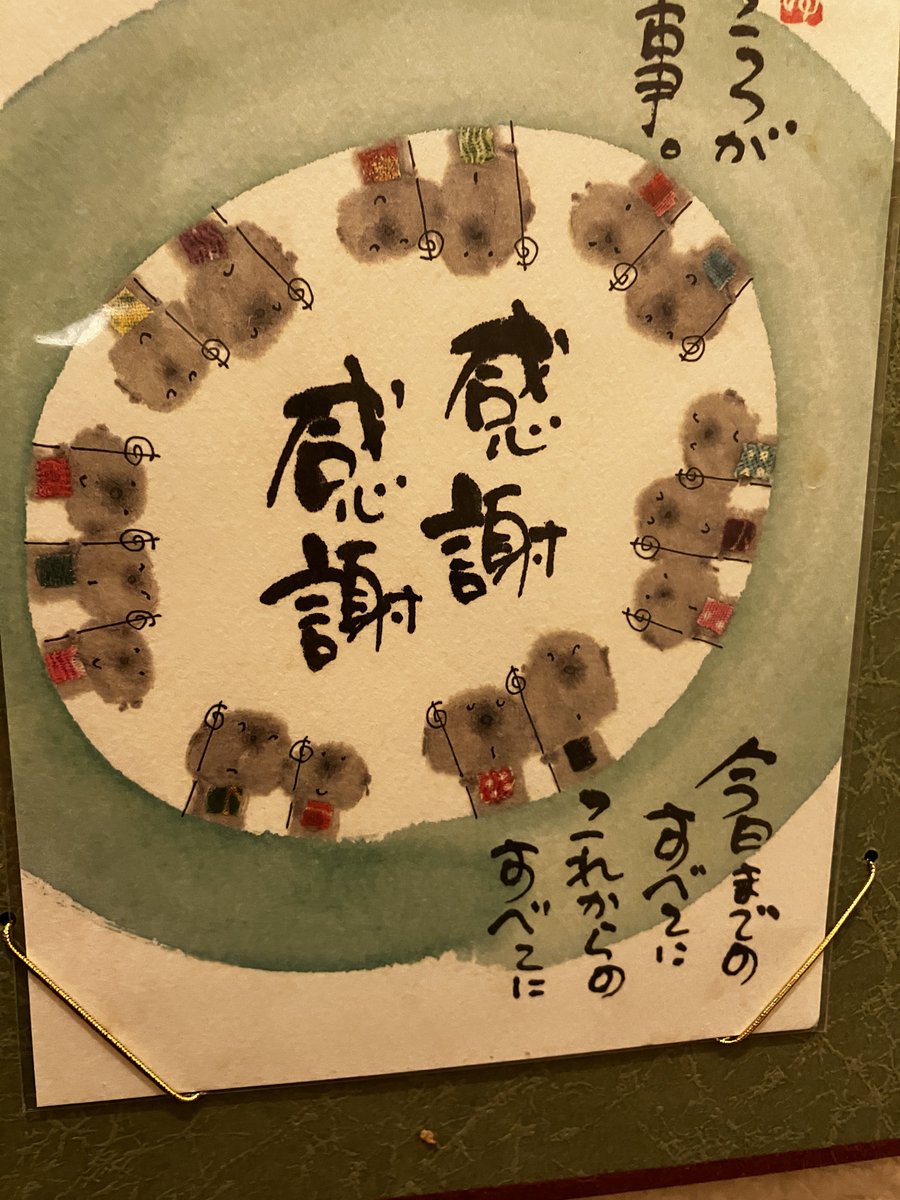 こころが
事。
感謝
感謝
今日までの
すべてに
これからの
すべてに